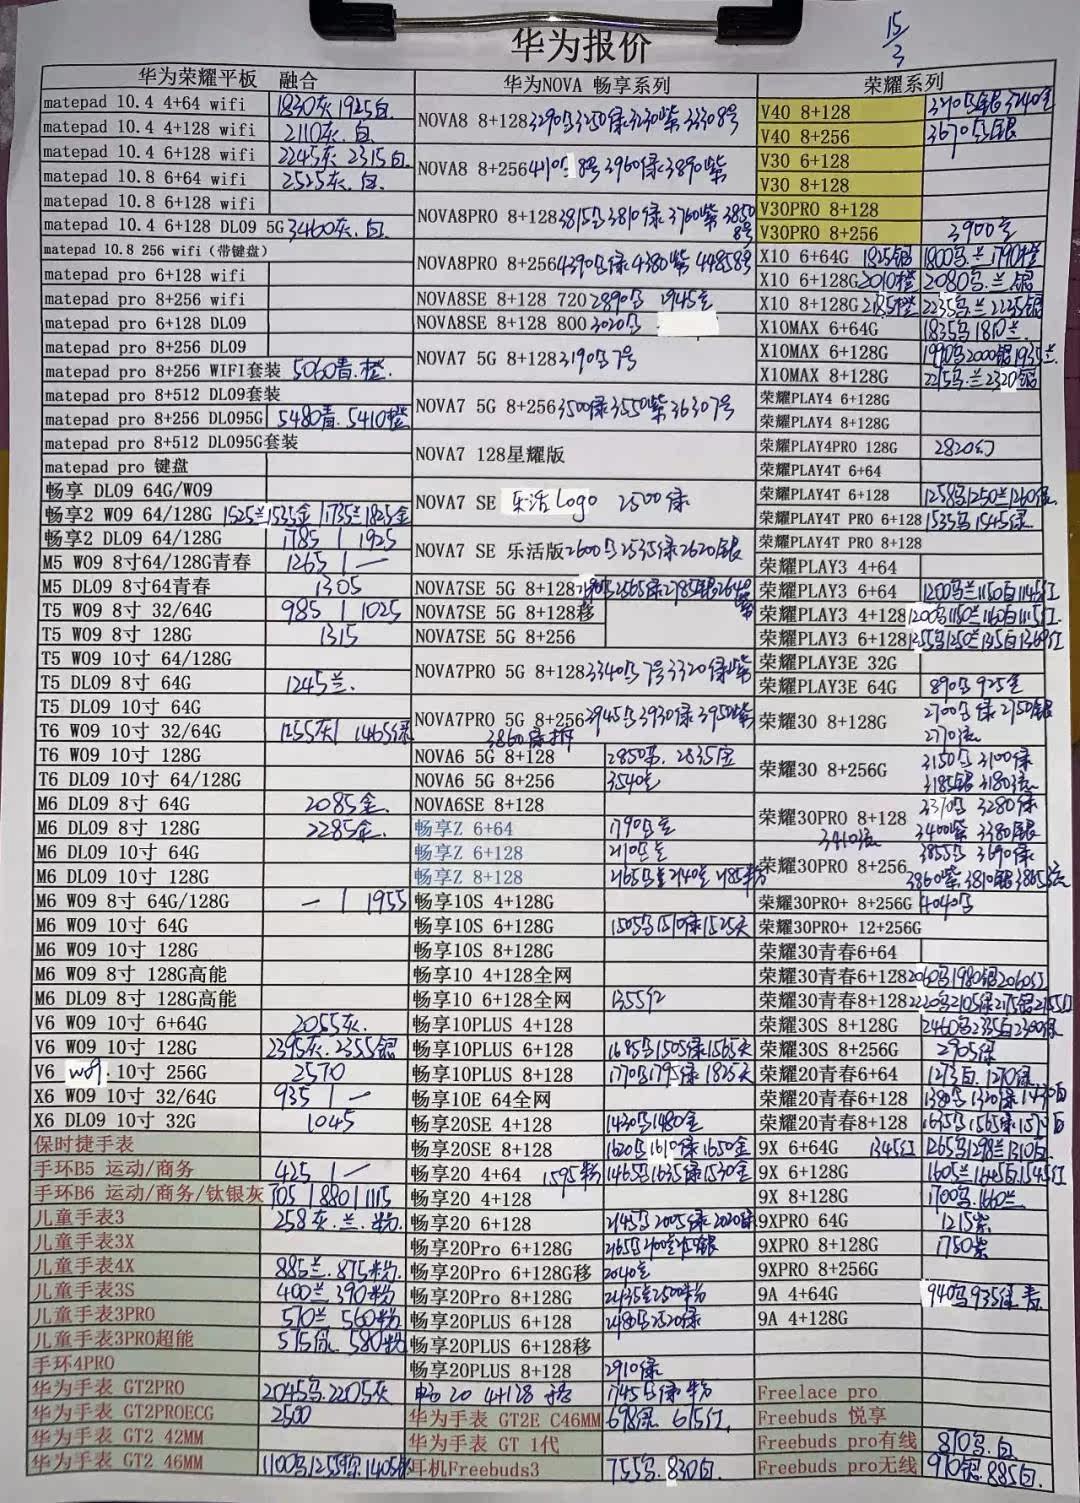 华为报价
15/3
华为荣耀平板 融合 华为NOVA 畅享系列 荣耀系列
matepad 10.4 4+64 wifi 1830灰 1925白
matepad 10.4 4+128 wifi 2110灰.白
matepad 10.4 6+128 wifi 2245灰 2315白
matepad 10.8 6+64 wifi 2525灰.白
matepad 10.8 6+128 wifi
matepad 10.4 6+128 DL09 5G 3460灰.白
matepad 10.8 256 wifi（带键盘）
matepad pro 6+128 wifi
matepad pro 8+256 wifi
matepad pro 6+128 DL09
matepad pro 8+256 DL09
matepad pro 8+256 WIFI套装 5060青.橙
matepad pro 8+512 DL09套装
matepad pro 8+256 DL095G 5480青.5410橙
matepad pro 8+512 DL095G套装
matepad pro 键盘
畅享 DL09 64G/W09
畅享2 W09 64/128G 1525兰1535金 1735兰1825金
畅享2 DL09 64/128G 1785 | 1925
M5 W09 8寸64/128G青春 1265 | 一
M5 DL09 8寸64青春 1305
T5 W09 8寸 32/64G 985 | 1025
T5 W09 8寸 128G 1315
T5 W09 10寸 64/128G
T5 DL09 8寸 64G 1245兰.
T5 DL09 10寸 64G
T6 W09 10寸 32/64G 1255灰| 1465绿
T6 W09 10寸 128G
T6 DL09 10寸 64/128G
M6 DL09 8寸 64G 2085金.
M6 DL09 8寸 128G 2285金.
M6 DL09 10寸 64G
M6 DL09 10寸 128G
M6 W09 8寸 64G/128G 一 | 1955
M6 W09 10寸 64G
M6 W09 10寸 128G
M6 W09 8寸 128G高能
M6 DL09 8寸 128G高能
V6 W09 10寸 6+64G 2055灰.
V6 W09 10寸 128G 2395灰.2355银
V6 W09.10寸 256G 2570
X6 W09 10寸 32/64G 935 | 一
X6 DL09 10寸 32G 1045
保时捷手表
手环B5 运动/商务 425 | 一
手环B6 运动/商务/钛银灰 705 | 880 | 1115
儿童手表3 258灰.兰.粉.
儿童手表3X
儿童手表4X 885兰.875粉.
儿童手表3S 400兰.390粉
儿童手表3PRO 570兰 560粉
儿童手表3PRO超能 580粉
手环4PRO
华为手表 GT2PRO 2045马.2205灰
华为手表 GT2PROECG 2500
华为手表 GT2 42MM
华为手表 GT2 46MM
NOVA8 8+128 3290马3250绿3230紫33308号
NOVA8 8+256 3960绿3890紫
NOVA8PRO 8+128 3815马3810绿 3760紫 3850 8号
NOVA8PRO 8+256 4380紫 44858号
NOVA8SE 8+128 720 2890马
NOVA8SE 8+128 800 3020马
NOVA7 5G 8+128 3190马7号
NOVA7 5G 8+256 3500绿3550紫36307号
NOVA7 128星耀版
NOVA7 SE 乐活Logo 2500绿
NOVA7 SE 乐活版 2600马2535绿2620银
NOVA7SE 5G 8+128 2565绿2785银
NOVA7SE 5G 8+128移
NOVA7SE 5G 8+256
NOVA7PRO 5G 8+128 3340马7号3320绿紫
NOVA7PRO 5G 8+256 3930绿3950紫
NOVA6 5G 8+128 2850马.2835金
NOVA6 5G 8+256 3540
NOVA6SE 8+128
畅享Z 6+64 1790马
畅享Z 6+128
畅享Z 8+128
畅享10S 4+128G
畅享10S 6+128G 1505马1510绿1525天
畅享10S 8+128G
畅享10 4+128全网
畅享10 6+128全网 1355红
畅享10PLUS 4+128
畅享10PLUS 6+128 1485马1505绿1565天
畅享10PLUS 8+128 1770马1795绿 1825天
畅享10E 64全网
畅享20SE 4+128 1430马1480金
畅享20SE 8+128 1620马1610绿1650金
畅享20 4+64 1595粉 1465马1635绿1530金
畅享20 4+128
畅享20 6+128
畅享20Pro 6+128G
畅享20Pro 6+128G移 2040
畅享20Pro 8+128G
畅享20PLUS 6+128 2480马2520绿
畅享20PLUS 6+128移
畅享20PLUS 8+128 2910绿
华为手表 GT2E C46MM 698绿.615红
华为手表 GT 1代
耳机Freebuds3 755马.830白
V40 8+128
V40 8+256 3670马银
V30 6+128
V30 8+128
V30PRO 8+128
V30PRO 8+256 3900
X10 6+64G 1825银 1800马.兰1790橙
X10 6+128G 2010橙 2080马.兰.银
X10 8+128G 2185橙 2235马兰2235银
X10MAX 6+64G 1835马1810兰
X10MAX 6+128G 1990马2000银1935兰
X10MAX 8+128G 2215马.兰2320银
荣耀PLAY4 6+128G
荣耀PLAY4 8+128G
荣耀PLAY4PRO 128G 2820幻
荣耀PLAY4T 6+64
荣耀PLAY4T 6+128 1258马1250兰1260绿
荣耀PLAY4T PRO 6+128 1535马1545绿
荣耀PLAY4T PRO 8+128
荣耀PLAY3 4+64
荣耀PLAY3 6+64 1200马兰1150白1145红
荣耀PLAY3 4+128
荣耀PLAY3 6+128
荣耀PLAY3E 32G
荣耀PLAY3E 64G 890马925
荣耀30 8+128G 2700马绿 2750银
荣耀30 8+256G 3150马 3100绿
荣耀30PRO 8+128 3310马 3280绿 3400紫 3380银
荣耀30PRO 8+256 3855马 3690绿 3860紫 3810银
荣耀30PRO+ 8+256G 4040马
荣耀30PRO+ 12+256G
荣耀30青春6+64
荣耀30青春6+128 2060马1980银2060红
荣耀30青春8+128 2220马2105绿2175银2155红
荣耀30S 8+128G 2460马2235白2300绿
荣耀30S 8+256G 2905绿
荣耀20青春6+64 1273白.1270绿
荣耀20青春6+128
荣耀20青春8+128
9X 6+64G 1345红 1265马1298兰1310白
9X 6+128G 1605兰1645白1545红
9X 8+128G 1700马.1660兰
9XPRO 64G 1215紫
9XPRO 8+128G 1750紫
9XPRO 8+256G
9A 4+64G 940马935绿.青
9A 4+128G
Freelace pro
Freebuds 悦享
Freebuds pro有线 870马.白
Freebuds pro无线 970银.885白.